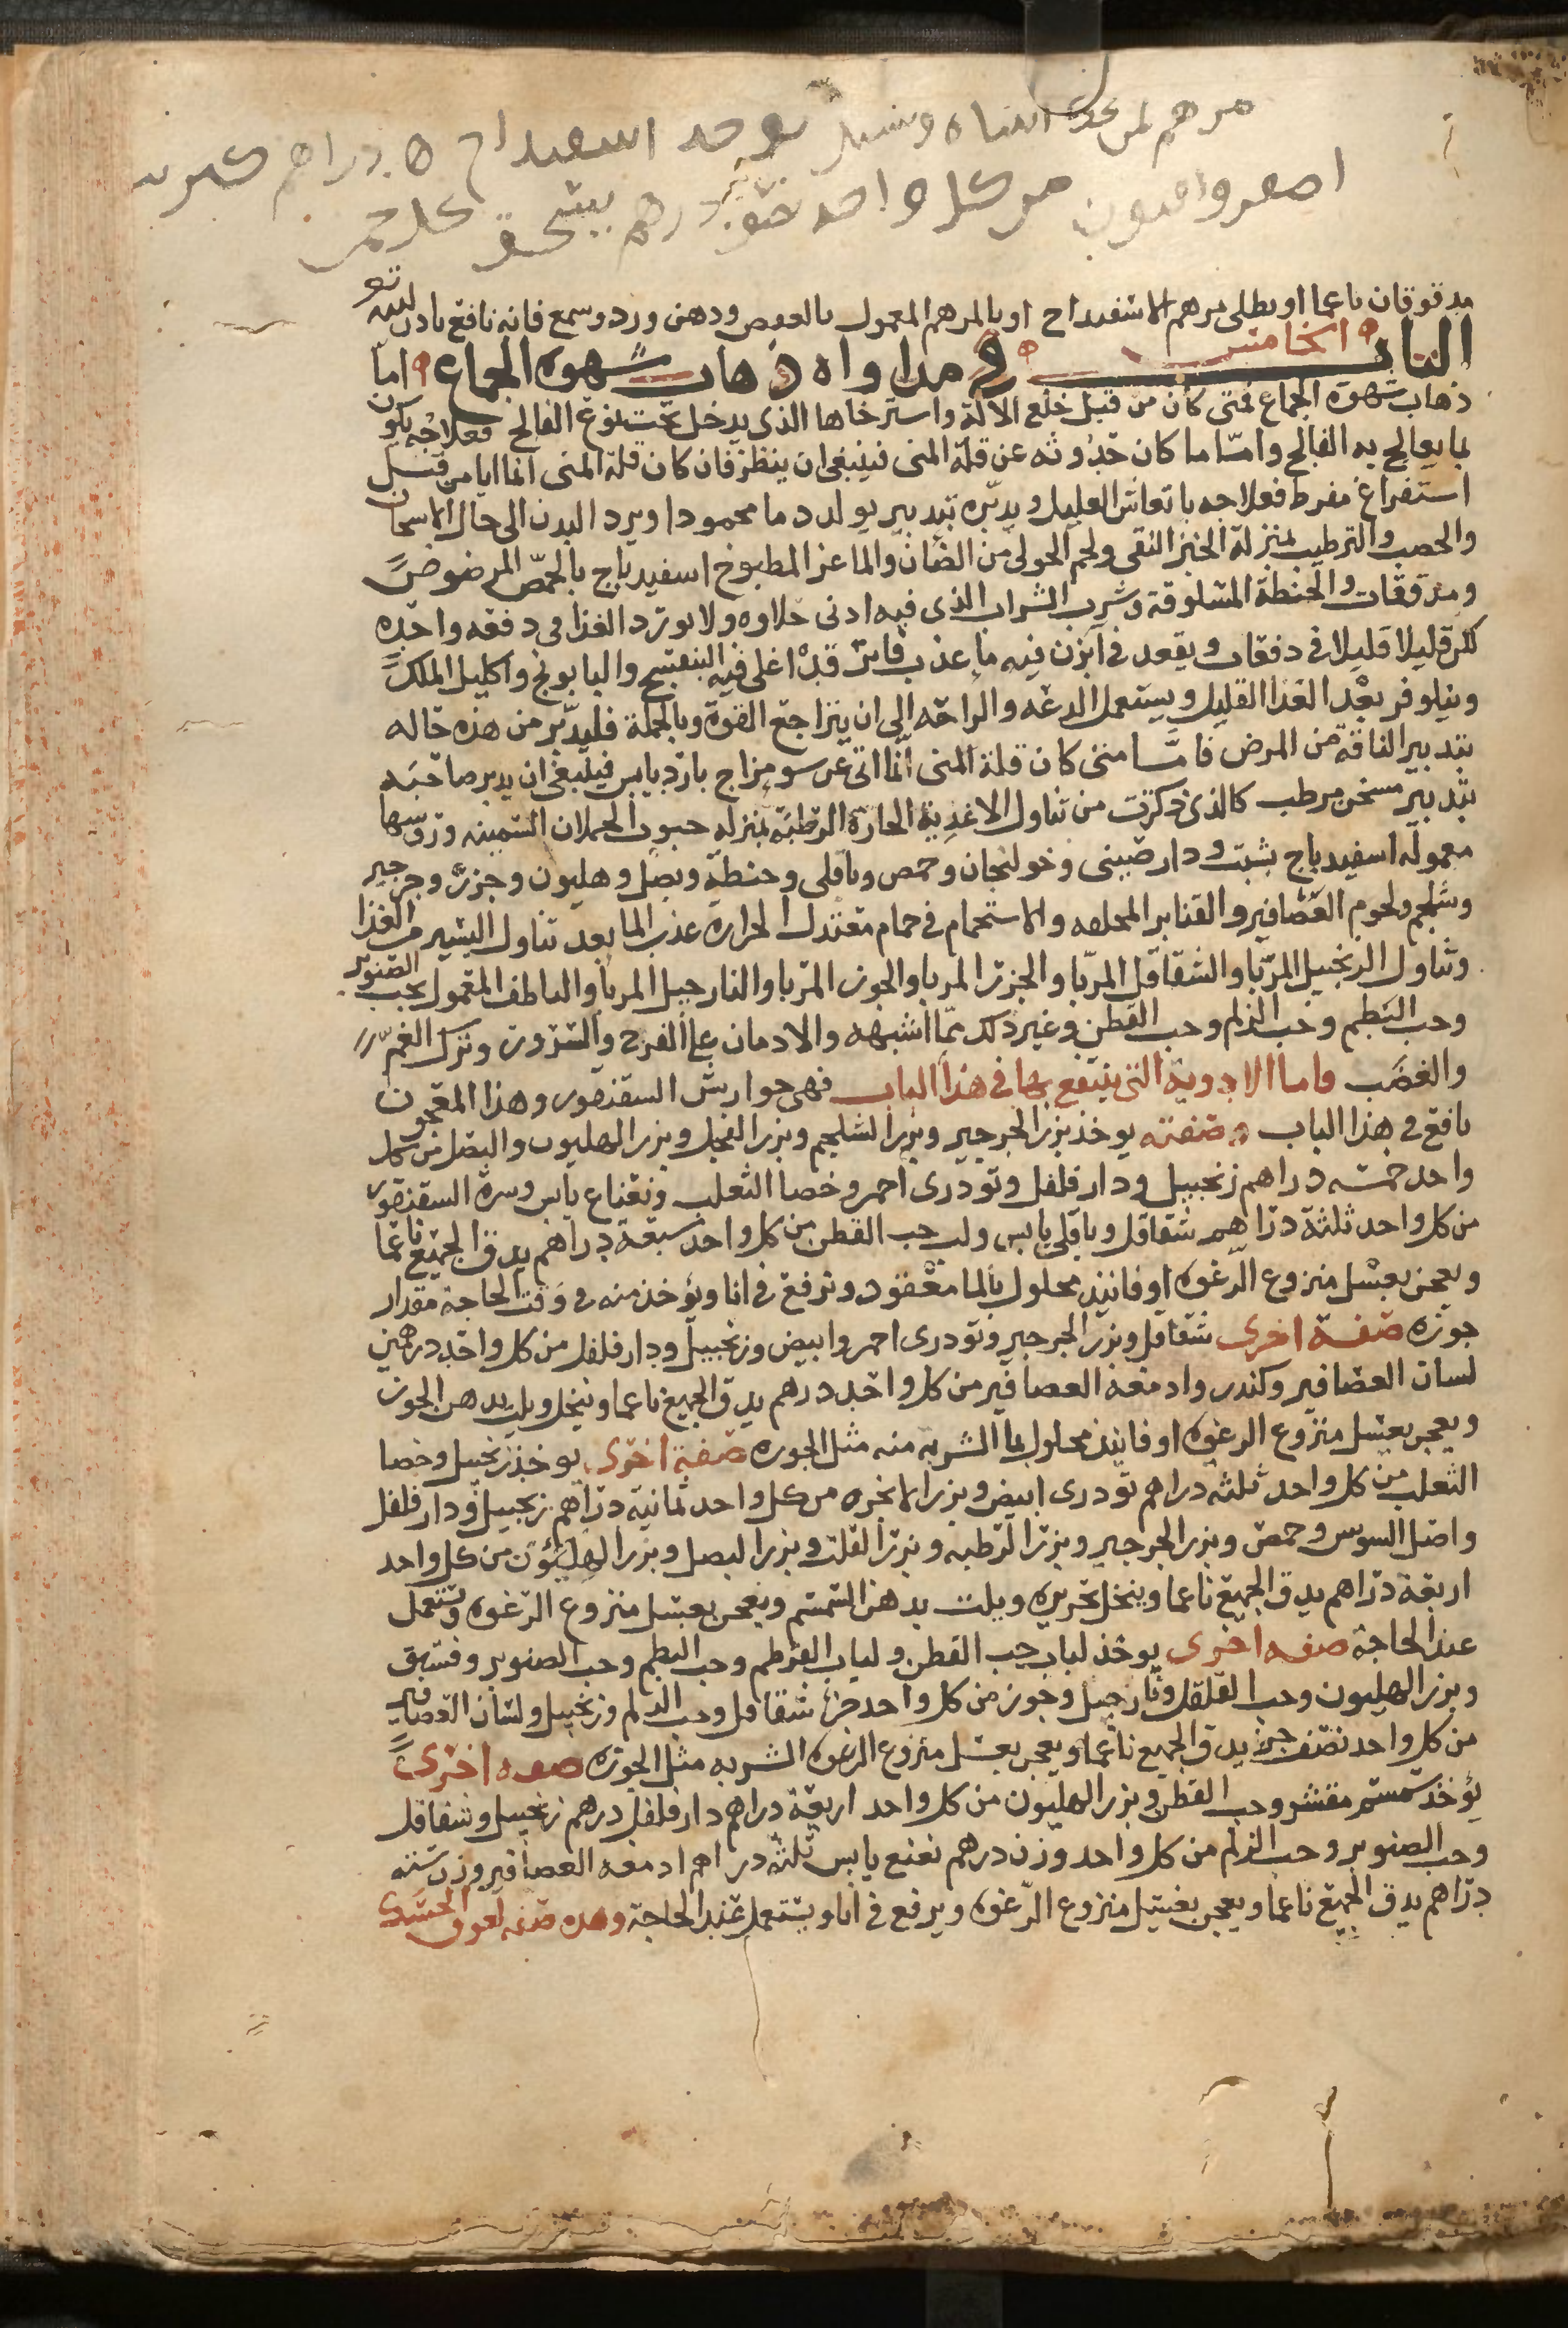 مرهم لمن يوخذ اسفيداج ٥ دراهم
اصفر وافيون من كل واحد درهم يسحق
مدقوقان ناعما او يطلى بمرهم الاسفيداج او بالمرهم المعمول بالعفص ودهن ورد وشمع فانه نافع باذن الله تع
الباب الخامس في مداواة ذهاب شهوة الجماع اما
ذهاب شهوة الجماع فمتى كان من قبل خلع الالة واسترخاها الذي يدخل تحت نوع الفالج فعلاجه يكون
بما يعالج به الفالج وامّا ما كان حدوثه عن قلة المنى فينبغى ان ينظر فان كان قلة المنى انما ايا من قبل
استفراغ مفرط فعلاجه بانعاش العليل ويدبّره بتدبير يولد دما محمودا ويرد البدن الى حال الاسخان
والخصب والترطيب بمنزلة الخبز النقى ولحم الحولى من الضان والماعز المطبوخ اسفيدباج بالحمّص المرضوض
ومدققات والحنطة المسلوقة وشرب الشراب الذي فيه ادنى حلاوه ولا يورد الغذا فى دفعه واحده
لكن قليلا قليلا في دفعات ويقعد في ابزن فيه ما عذب فاتر قد اغلى فيه البنفسج والبابونج واكليل الملك
ونيلوفر بعد الغذا القليل ويستعمل الدعه والراحه الى ان يتراجع القوة وبالجملة فليدبّر من هذه حاله
بتدبير الناقه من المرض فامّا متى كان قلة المنى انما اتى عن سو مزاج بارد يابس فينبغى ان يدبر صاحبه
بتدبير مسخن مرطب كالذى ذكرت من تناول الاغذية الحارة الرطبة بمنزلة جنوب الحملان السمينه وروسها
معموله اسفيدباج بشبت ودارصينى وخولنجان وحمص وباقلى وحنطة وبصل وهليون وجزر وجرجير
وشلجم ولحوم العصافير والقنابر والاستحمام في حمام معتدل الحرارة عذب الما بعد تناول اليسير من الغذا
وتناول الزنجبيل المربّا والشقاقل المربّا والجزر المربا والجوز المربا والنارجيل المربا والناطف المعمول بحب الصنوبر
وحب البطم وحب الزلم وحب القطن وغير ذلك ممّا اشبهه والادمان على الفرح والسرور وترك الغمّ
والغضب فاما الادوية التى ينتفع بها في هذا الباب فهى جوارش السقنقور وهذا المعجون
نافع في هذا الباب وصفته يوخذ بزر الجرجير وبزر الشلجم وبزر الفجل وبزر الهليون والبصل من كل
واحد خمسه دراهم زنجبيل ودار فلفل وتودرى احمر وخصا الثعلب ونعناع يابس وسرة السقنقور
من كل واحد ثلثة دراهم شقاقل وباقلى يابس ولب حب القطن من كل واحد سبعة دراهم يدق الجميع ناعما
ويعجن بعسل منزوع الرغوه او فانيذ محلول بالما معقود وترفع في انا ويؤخذ منه في وقت الحاجة مقدار
جوزه صفة اخرى شقاقل وبزر الجرجير وتودرى احمر وابيض وزنجبيل ودار فلفل من كل واحد درهمين
لسان العصافير وكندر وادمغه العصافير من كل واحد درهم يدق الجميع ناعما وينخل ويلت بدهن الجوز
ويعجن بعسل منزوع الرغوه او فانيذ محلول بما الشربه منه مثل الجوزه صفة اخرى يوخذ زنجبيل وخصا
الثعلب من كل واحد ثلثه دراهم تودرى ابيض وبزر الانجره من كل واحد ثمانية دراهم زنجبيل ودار فلفل
واصل السوس وحمص وبزر الجرجير وبزر الرطبه وبزر اللفت وبزر البصل وبزر الهليون من كل واحد
اربعة دراهم يدق الجميع ناعما وينخل بحريره ويلت بدهن السمسم ويعجن بعسل منزوع الرغوه وتستعمل
عند الحاجة صفه اخرى يوخذ لباب حب القطن ولباب القرطم وحب البطم وحب الصنوبر وفستق
وبزر الهليون وحب القلقل ونارجيل وجوز من كل واحد جزء شقاقل وحب الزلم وزنجبيل ولسان العصافير
من كل واحد نصف جزء يدق الجميع ناعما ويعجن بعسل منزوع الرغوه الشربه مثل الجوزه صفه اخرى
يؤخذ سمسم مقشر وحب القطن وبزر الهليون من كل واحد اربعة دراهم دار فلفل درهم زنجبيل وشقاقل
وحب الصنوبر وحب الزلم من كل واحد وزن درهم نعنع يابس ثلثه دراهم ادمغه العصافير وزن سته
دراهم يدق الجميع ناعما ويعجن بعسل منزوع الرّغوه ويرفع في انا ويستعمل عند الحاجة وهذه صفه لعوق